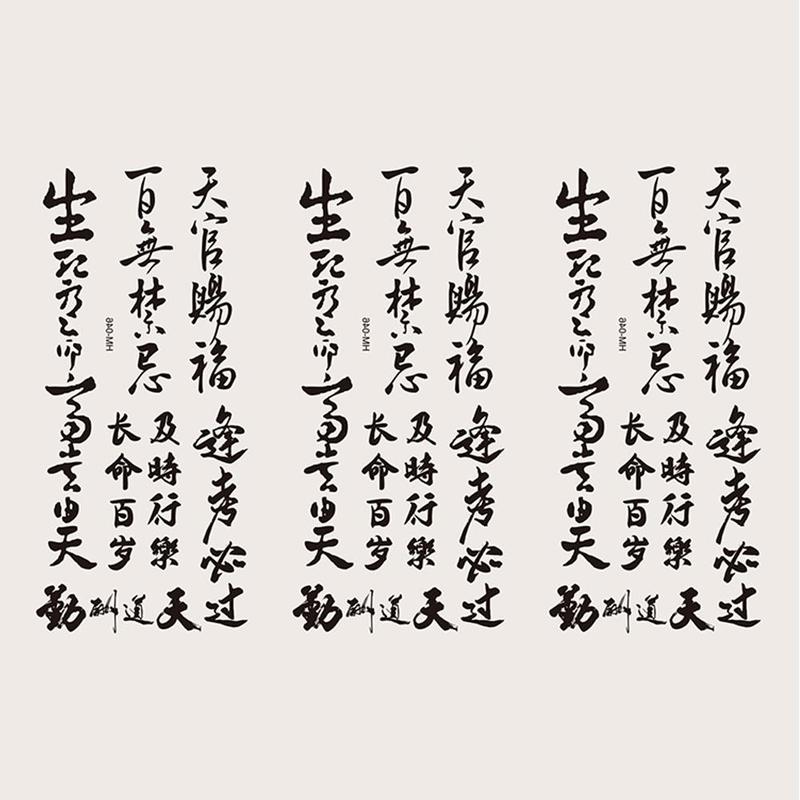 天官賜福
百無禁忌
生死有命富貴由天
逢考必过
及時行樂
长命百岁
天道酬勤
HM-046
天官賜福
百無禁忌
生死有命富貴由天
逢考必过
及時行樂
长命百岁
天道酬勤
HM-046
天官賜福
百無禁忌
生死有命富貴由天
逢考必过
及時行樂
长命百岁
天道酬勤
HM-046